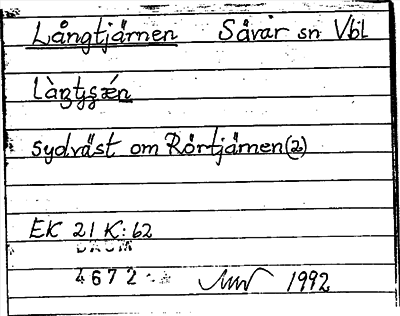 Långtjärnen Sävar sn Vbl
sydväst om Rörtjärnen (2)
EK 21 K: 62
DAUM
4672 1992